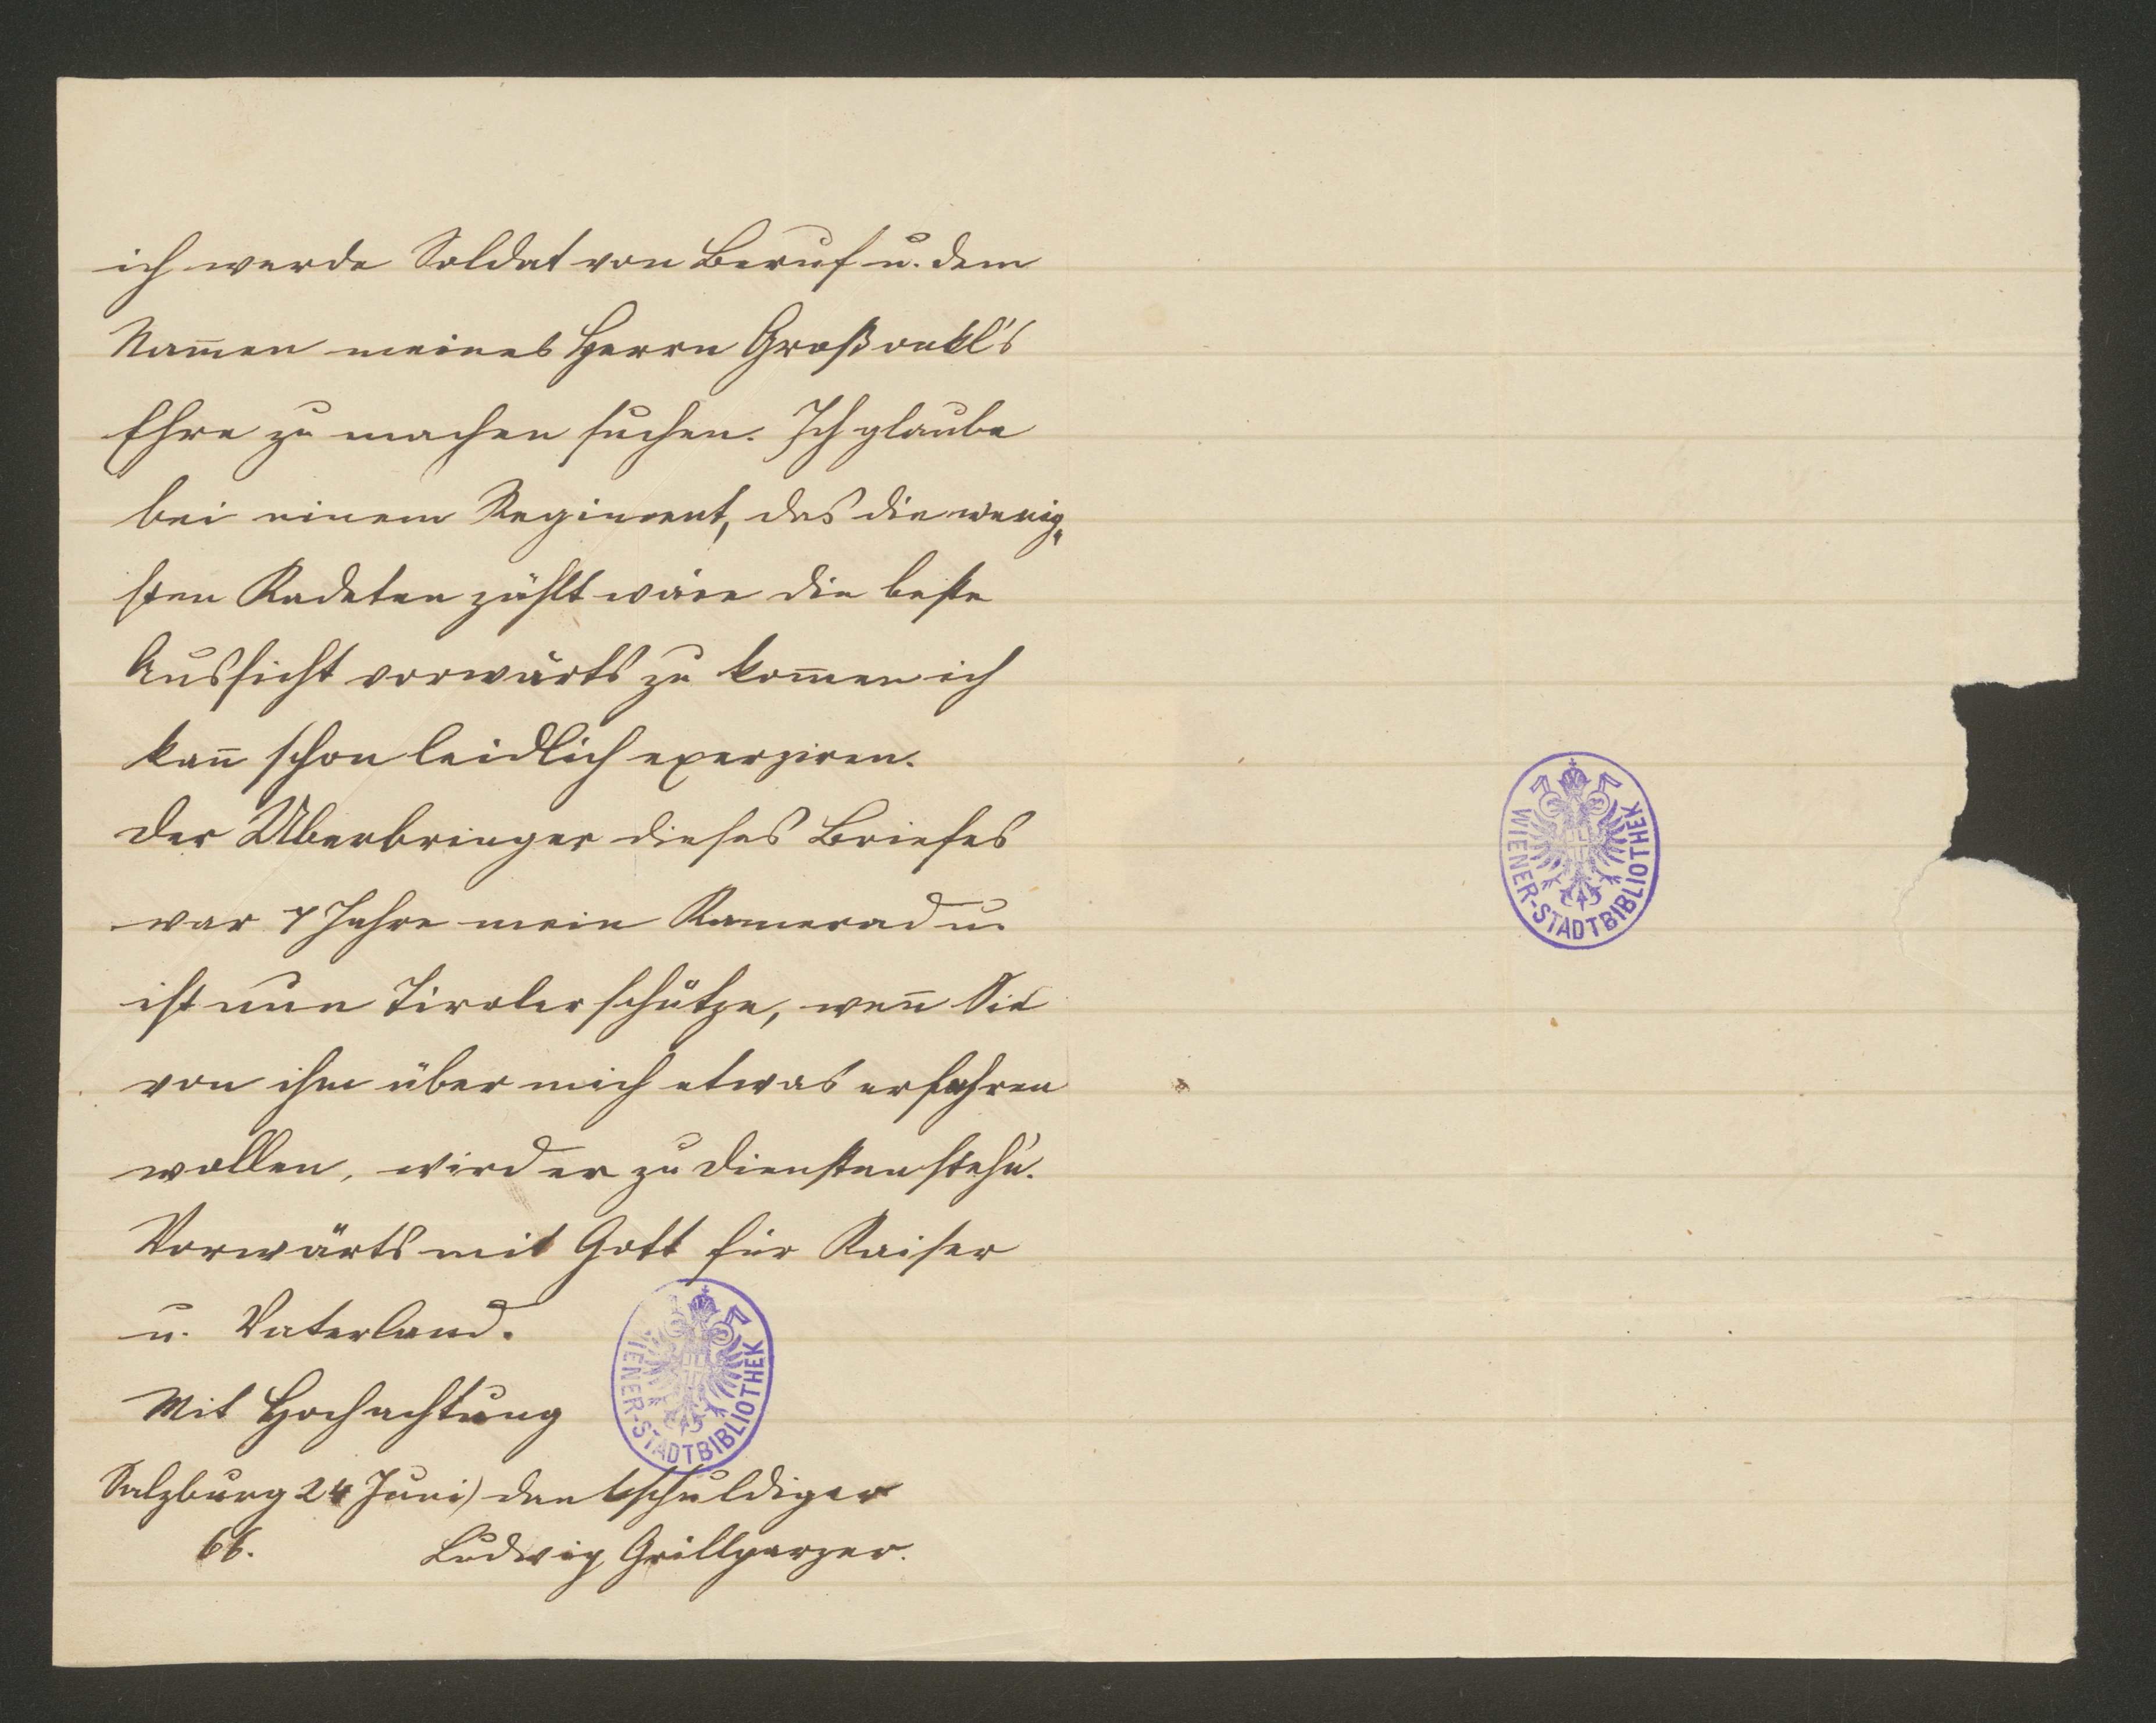 ich werde Soldat von Beruf u. dem
Nam̅en meines Herrn Großonkl's
Ehre zu machen suchen. Ich glaube
bei einem Regiment, das die wenig„
sten Kadeten zählt wäre die beste
Aussicht vorwärts zu kom̅en ich
kan̅ schon leidlich exerziren.
Der Überbringer dieses Briefes
war 7 Jahre mein Kamerad u.
ist nun Tirolerschütze, wen̅ Sie
von ihm über mich etwas erfahren
wollen, wird er zu Diensten steh'n.
Vorwärts mit Gott für Kaiser
u. Vaterland.
Mit Hochachtung
Salzburg 24 Juni) dankschuldiger
66. Ludwig Grillparzer.
WIENER-STADTBIBLIOTHEK
WIENER-STADTBIBLIOTHEK